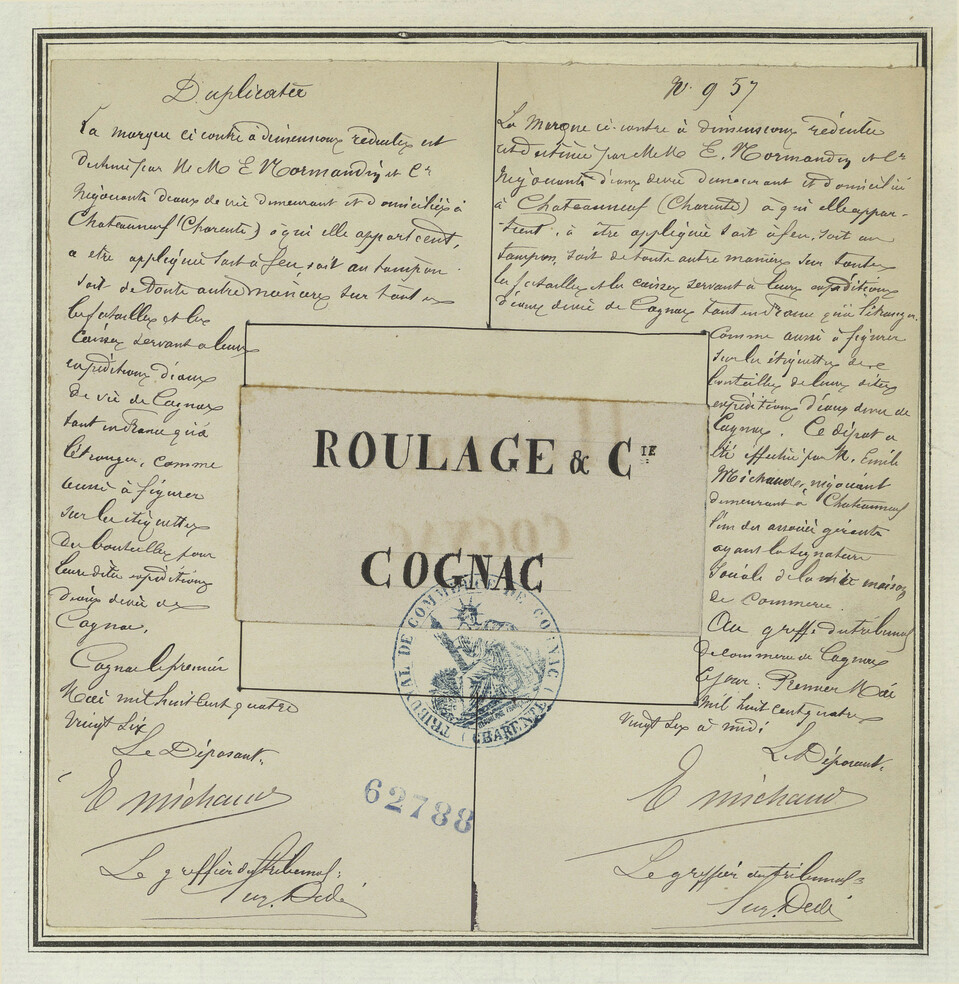 Duplicater
La marque ci contre à dimensions réduites est
destinée par M M E Normandin et Cie
négociants d'eaux de vie demeurant et domiciliés à
Chateauneuf (Charente) à qui elle appartient,
a etre appliquée soit à feu, soit au tampon
soit de toute autre manière sur toutes
les futailles et les
caisses servant a leurs
expéditions d'eaux
de vie de Cognac
tant en France qu'à
l'étranger, comme
aussi à figurer
sur les étiquettes
des bouteilles pour
leurs dites expéditions
d'eaux de vie de
Cognac.
Cognac le premier
Mai mil huit cent quatre
vingt six
Le Déposant,
E Michaud
Le greffier du tribunal:
Eug. Dedé
N° 957
La marque ci-contre à dimensions réduites
est destinée par M M E. Normandin et Cie
négociants d'eaux de vie demeurant et domiciliés
à Chateauneuf (Charente) à qui elle appar-
tient, à être appliquée soit à feu, soit au
tampon, soit de toute autre manière sur toutes
les futailles et les caisses servant à leurs expéditions
d'eaux de vie de Cognac tant en France qu'à l'étranger,
comme aussi à figurer
sur les étiquettes des
bouteilles de leurs dites
expéditions d'eaux de vie de
Cognac. Ce dépot a
été effectué par M. Emile
Michaud, négociant
demeurant à Chateauneuf
l'un des associés gérants
ayant la signature
sociale de la dite maison
de commerce.
Au greffe du tribunal
de commerce de Cognac
Ce jour: Premier Mai
mil huit cent quatre
vingt six à midi
Le Déposant,
E Michaud
Le greffier du tribunal:
Eug. Dedé
ROULAGE & CIE
COGNAC
TRIBUNAL DE COMMERCE DE COGNAC (CHARENTE)
62788